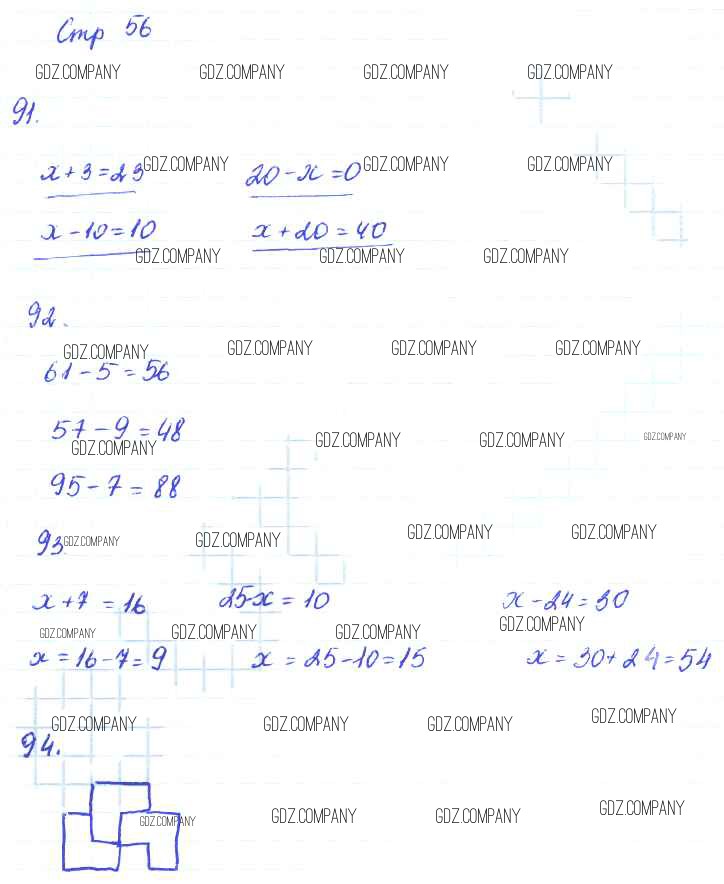 Стр 56
GDZ.COMPANY GDZ.COMPANY GDZ.COMPANY GDZ.COMPANY
91.
x + 3 = 23 GDZ.COMPANY 20 - x = 0 GDZ.COMPANY GDZ.COMPANY
x - 10 = 10 x + 20 = 40
GDZ.COMPANY GDZ.COMPANY GDZ.COMPANY
92.
GDZ.COMPANY GDZ.COMPANY GDZ.COMPANY GDZ.COMPANY
61 - 5 = 56
57 - 9 = 48
GDZ.COMPANY GDZ.COMPANY GDZ.COMPANY GDZ.COMPANY
95 - 7 = 88
93 GDZ.COMPANY GDZ.COMPANY GDZ.COMPANY GDZ.COMPANY
x + 7 = 16 25 - x = 10 x - 24 = 30
GDZ.COMPANY GDZ.COMPANY GDZ.COMPANY GDZ.COMPANY
x = 16 - 7 = 9 x = 25 - 10 = 15 x = 30 + 24 = 54
GDZ.COMPANY GDZ.COMPANY GDZ.COMPANY GDZ.COMPANY
94.
GDZ.COMPANY GDZ.COMPANY GDZ.COMPANY GDZ.COMPANY